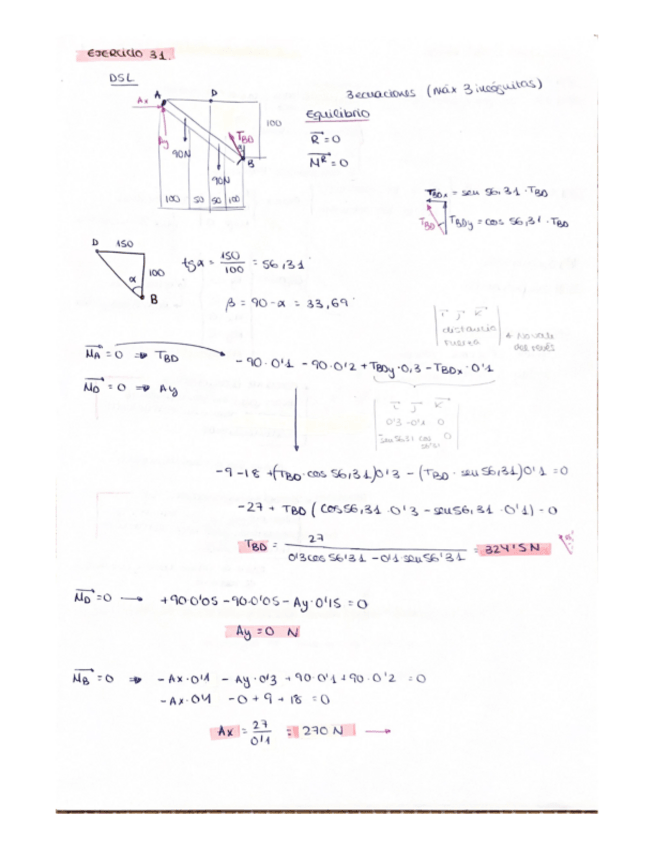 EJERCICIO 31.
DSL
3 ecuaciones (máx 3 incógnitas)
Equilibrio
R = 0
M^R = 0
Ax
A
D
100
TBD
Ay
B
90N
90N
100 50 50 100
TBDx = sen 56,31 · TBD
TBD
TBDy = cos 56,31 · TBD
D 150
100
α
B
tgα = 150/100 = 56,31°
β = 90-α = 33,69°
i j k
distancia
fuerza
MA = 0 ⇒ TBD
-90·0'1 - 90·0'2 + TBDy·0,3 - TBDx·0'1
MD = 0 ⇒ Ay
i j k
0'3 -0'1 0
-9-18 +(TBD·cos 56,31)0'3 - (TBD·sen 56,31)0'1 = 0
-27 + TBD (cos56,31·0'3 - sen56,31·0'1) = 0
TBD = 27 / 0'3cos56'31 - 0'1 sen56'31 = 324'5 N
MD = 0 → +90·0'05 - 90·0'05 - Ay·0'15 = 0
Ay = 0 N
MB = 0 ⇒ - Ax·0'1 - Ay·0'3 + 90·0'1 + 90·0'2 = 0
- Ax·0'1 - 0 + 9 + 18 = 0
Ax = 27/0'1 = 270 N →